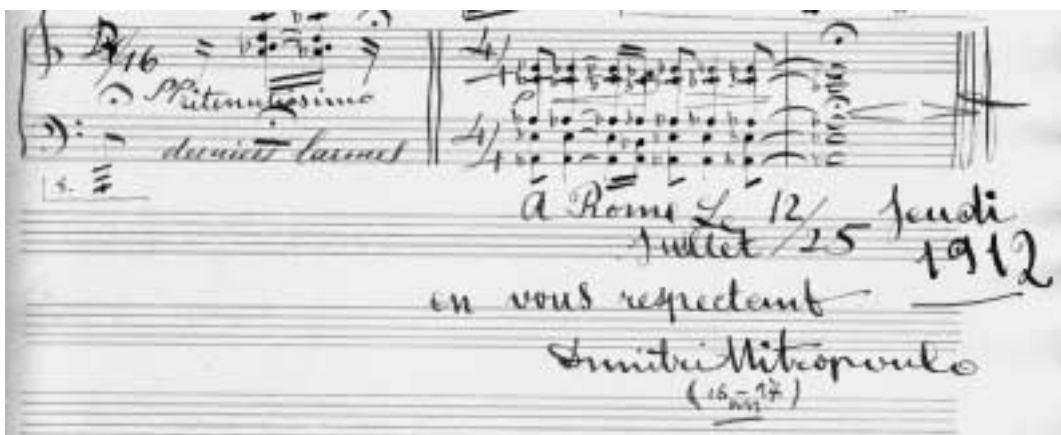 ritenutissimo
derniers larmes
A Rome Le 12/25 Jeudi
Juillet 1912
en vous respectant
Dmitri Mitropoulo
(16–17)